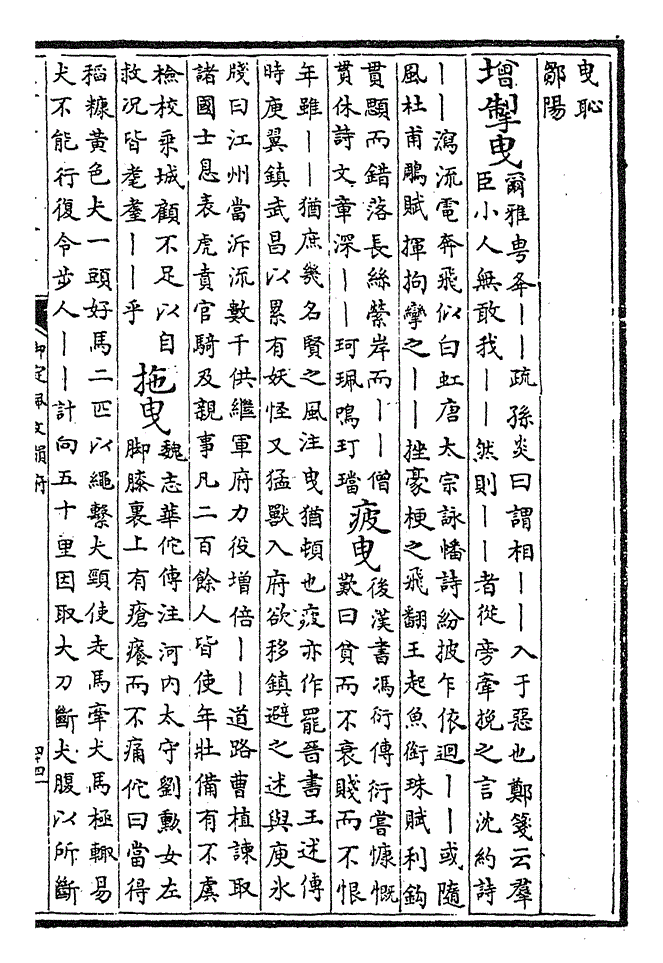 曳恥
鄒陽
增掣曳
爾雅甹夆——疏孫炎曰謂相——入于惡也鄭箋云羣
臣小人無敢我——然則——者從旁牽挽之言沈約詩
——瀉流電奔飛似白虹唐太宗詠幡詩紛披乍依迴——或隨
風杜甫鵰賦揮拘攣之——挫豪梗之飛翻王起魚銜珠賦利鈎
貫顋而錯落長絲縈岸而——僧
貫休詩文章深——珂珮鳴玎璫
疲曳
後漢書馮衍傳衍嘗慷慨
歎曰貧而不衰賤而不恨
年雖——猶庶幾名賢之風注曳猶頓也疲亦作罷晉書王述傳
時庾翼鎮武昌以累有妖怪又猛獸入府欲移鎮避之述與庾冰
牋曰江州當泝流數千供繼軍府力役增倍——道路曹植諫取
諸國士息表虎賁官騎及親事凡二百餘人皆使年壯備有不虞
檢校乘城顧不足以自
救况皆耄耋——乎
拖曳
魏志華佗傳注河內太守劉勲女左
脚膝裏上有瘡癢而不痛佗曰當得
稻糠黃色犬一頭好馬二匹以繩繫犬頸使走馬牽犬馬極輙易
犬不能行復令步人——計向五十里因取大刀斷犬腹以所斷
御定佩文韻府